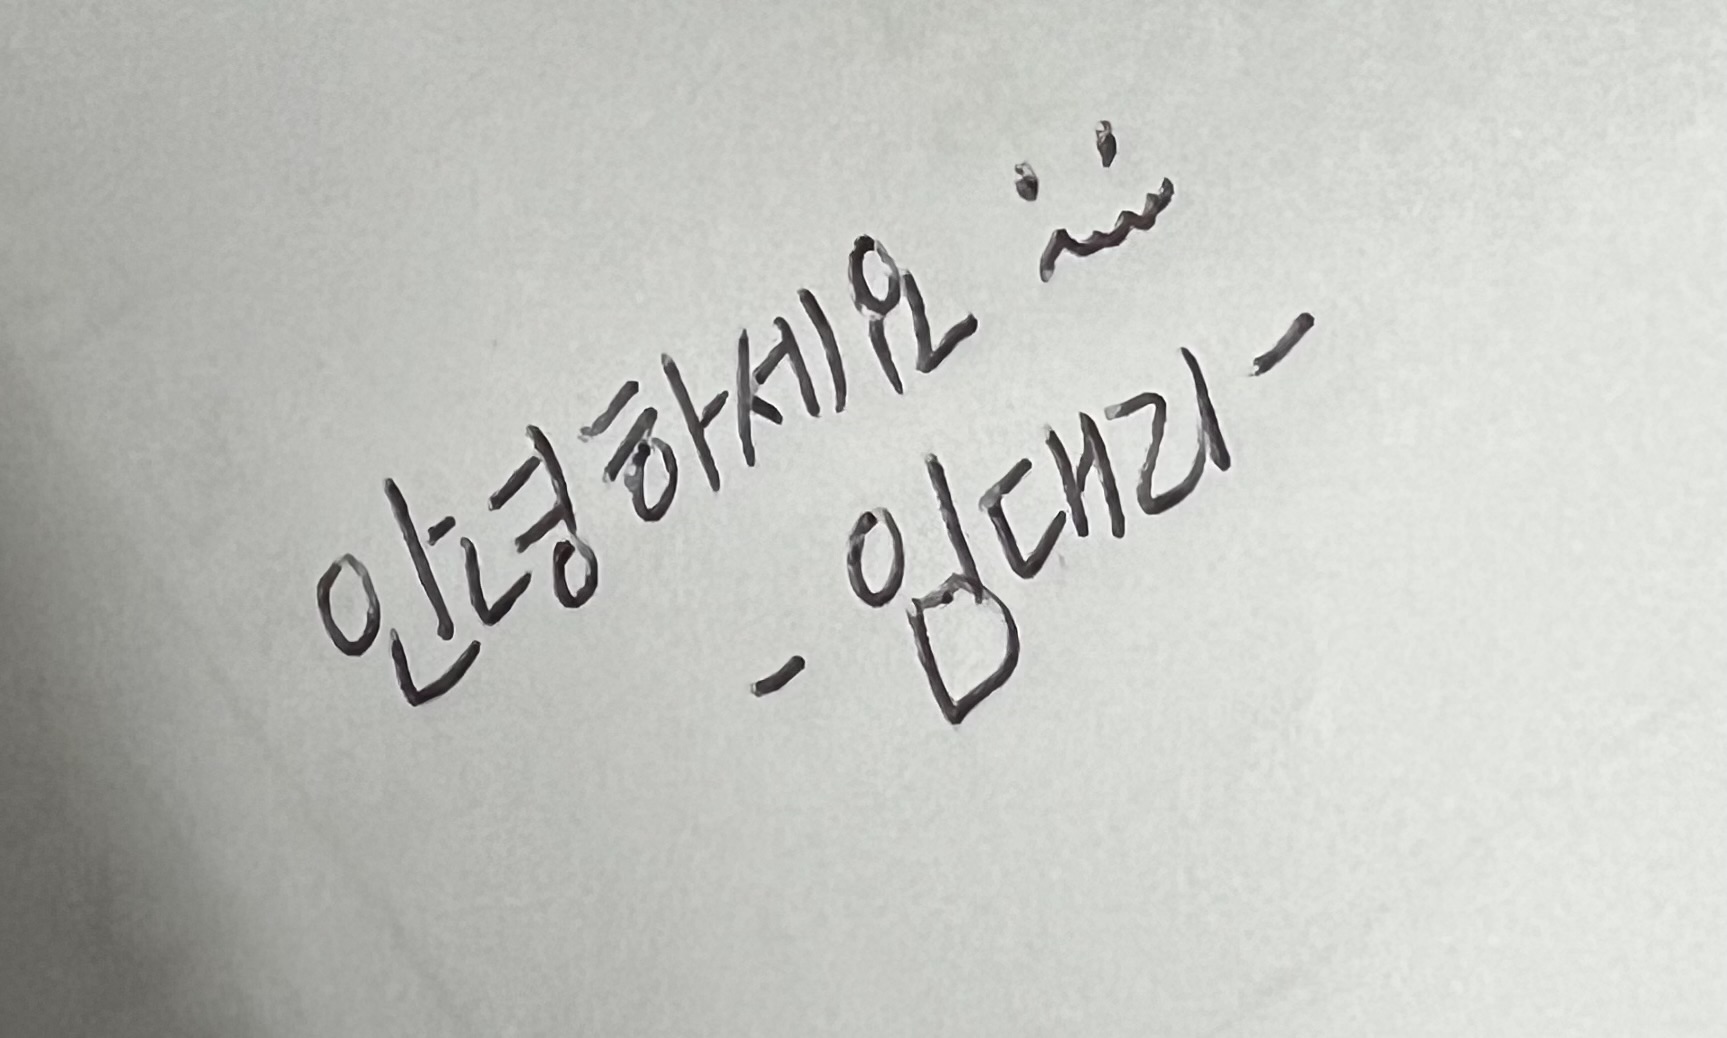 안녕하세요
- 임대리 -